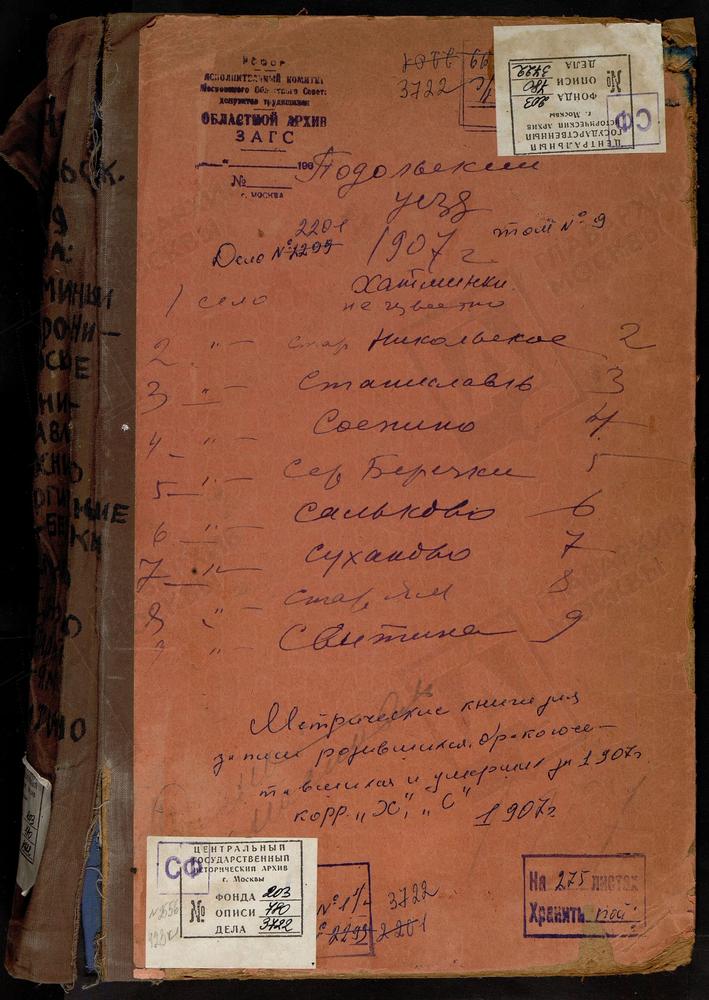 РСФСР
ИСПОЛНИТЕЛЬНЫЙ КОМИТЕТ
Московского Областного Совета
депутатов трудящихся
ОБЛАСТНОЙ АРХИВ
ЗАГС
№
г. МОСКВА
3722
ЦЕНТРАЛЬНЫЙ
ГОСУДАРСТВЕННЫЙ
ИСТОРИЧЕСКИЙ АРХИВ
г. Москвы
ФОНДА 203
№ ОПИСИ 780
ДЕЛА 3722
СФ
Подольский
уезд
2201
Дело № 2299
1907 г.
том № 9
1 село Хатминки
не известно
2 " — стар Никольское 2
3 " — Станиславль 3
4 " — Соснино 4
5 " — Сер Бережки 5
6 " — Сальково 6
7 " — Суханово 7
8 " — стар Ям 8
Свитино 9
Метрические книги для
записи родившихся, бракосоче-
тавшихся и умерших за 1907г.
корр. "Х", "С" 1907г.
ЦЕНТРАЛЬНЫЙ
ГОСУДАРСТВЕННЫЙ
ИСТОРИЧЕСКИЙ АРХИВ
г. Москвы
СФ
ФОНДА 203
№ ОПИСИ 780
ДЕЛА 3722
3722
2299 2201
На 275 листах
Хранить пост.